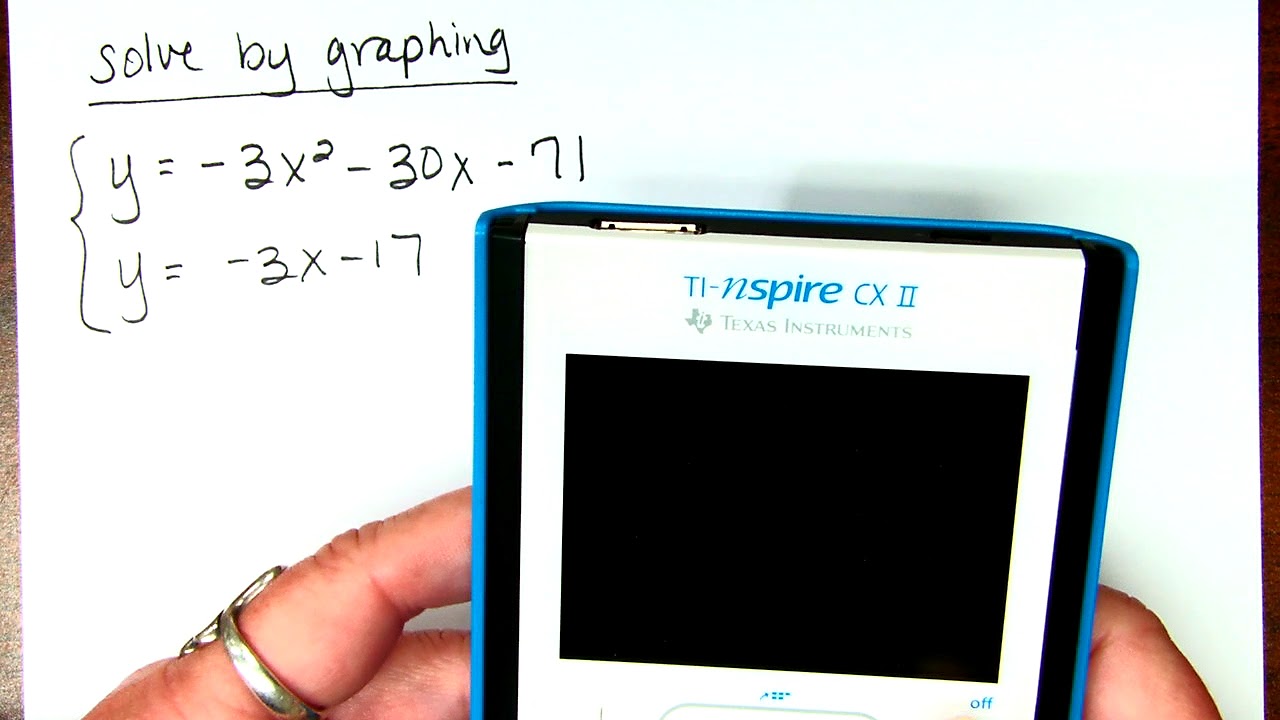 solve by graphing
y = -3x² - 30x - 71
y = -3x - 17
TI-nspire CX II
TEXAS INSTRUMENTS
off